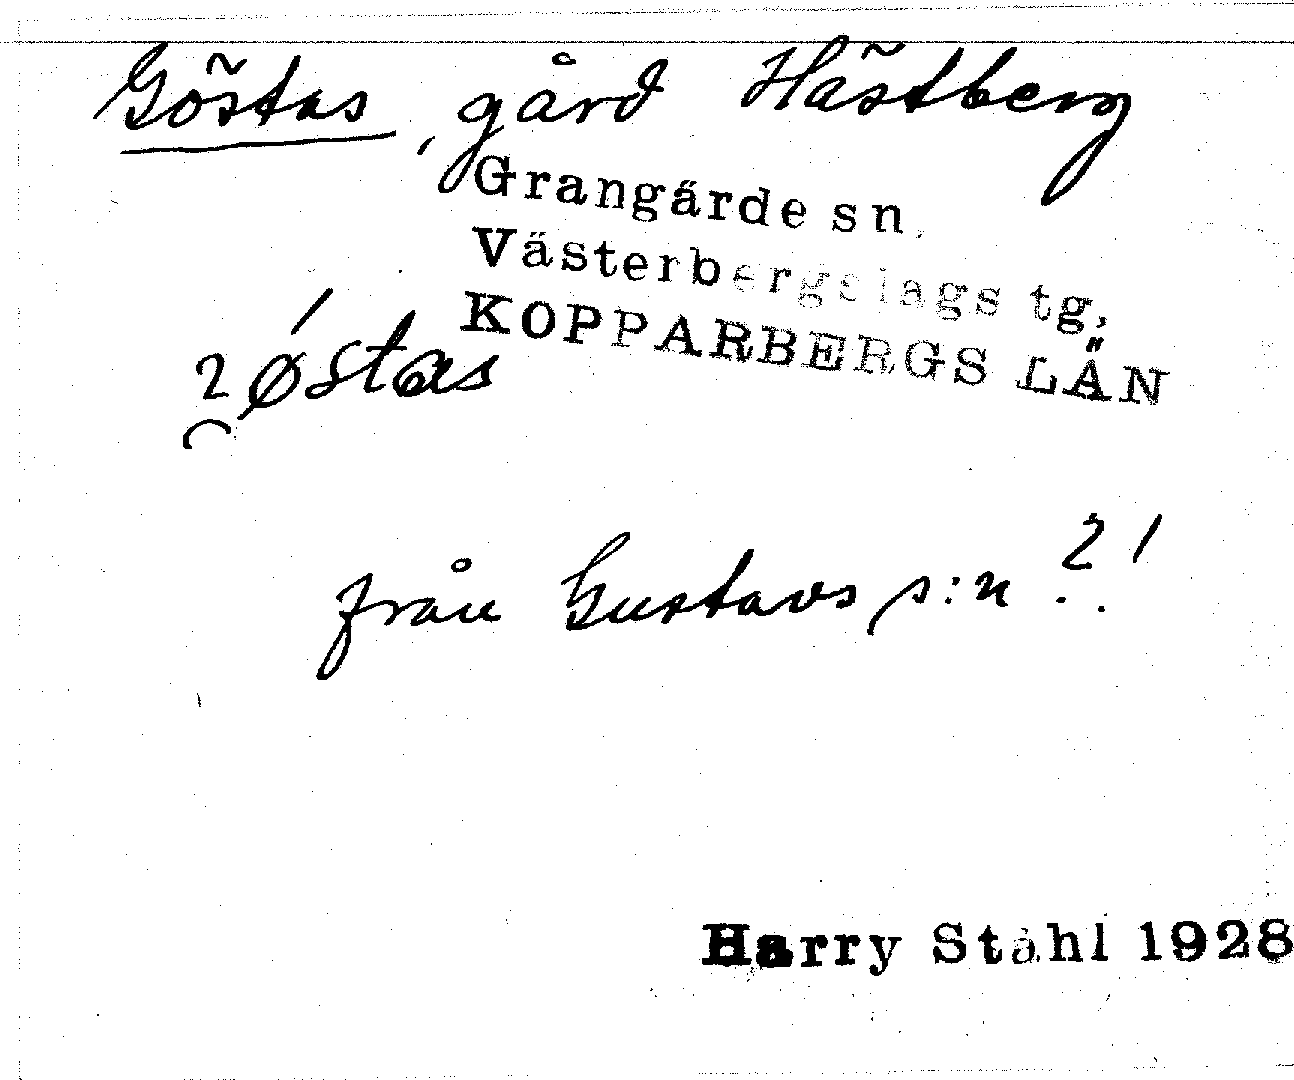 Göstas, gård Hästberg
Grangärde sn.
Västerbergslags tg,
KOPPARBERGS LÄN
från Gustavs s:n ?!
Harry Ståhl 1928